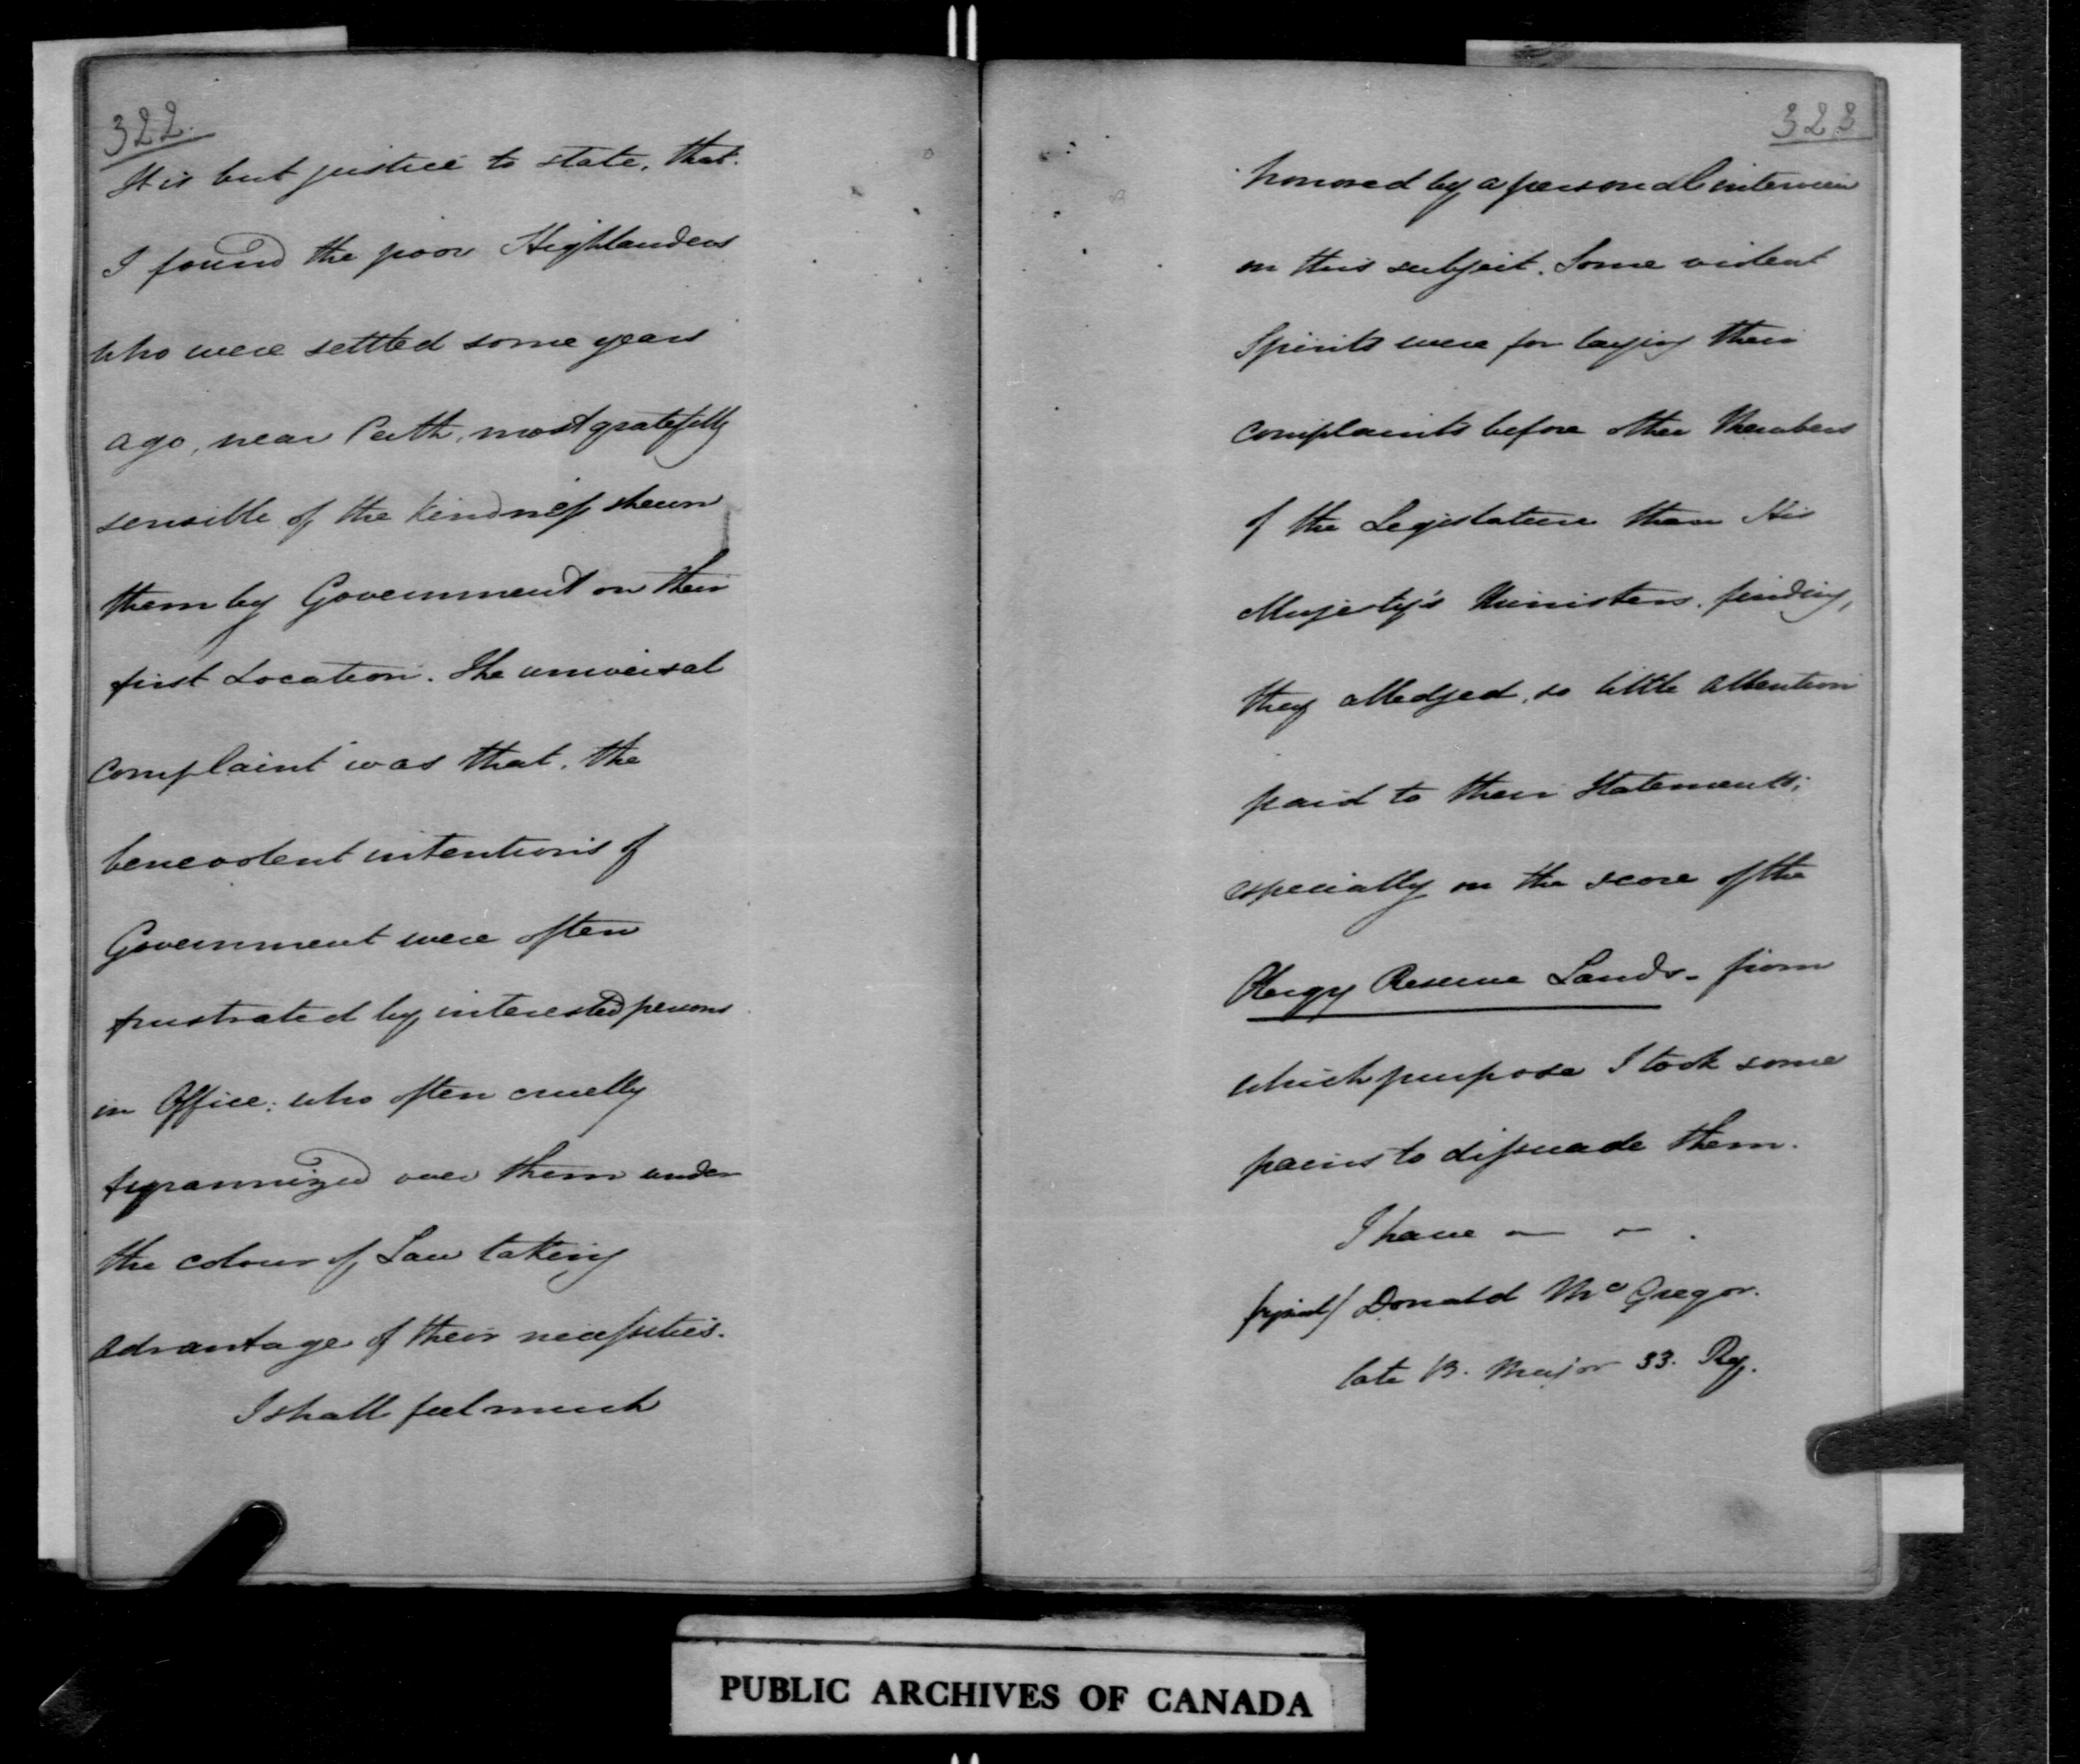 322.
It is but justice to state, that
I found the poor Highlanders
who were settled some years
ago, near Perth, most gratefully
sensible of the kindness shewn
them by Government on their
first Location. The universal
complaint was that, the
benevolent intentions of
Government were often
frustrated by interested persons
in Office; who often cruelly
tyrannized over them under
the colour of Law taking
advantage of their necessities.
I shall feel much
323
honored by a personal interview
on this subject. Some violent
Spirits were for laying their
complaints before other Members
of the Legislature than His
Majesty's Ministers, finding,
they alledged, so little attention
paid to their Statements;
especially on the score of the
Clergy Reserve Lands - from
which purpose I took some
pains to dissuade them.
I have — — .
(signed) Donald McGregor.
late B. Major 33. Reg.
PUBLIC ARCHIVES OF CANADA